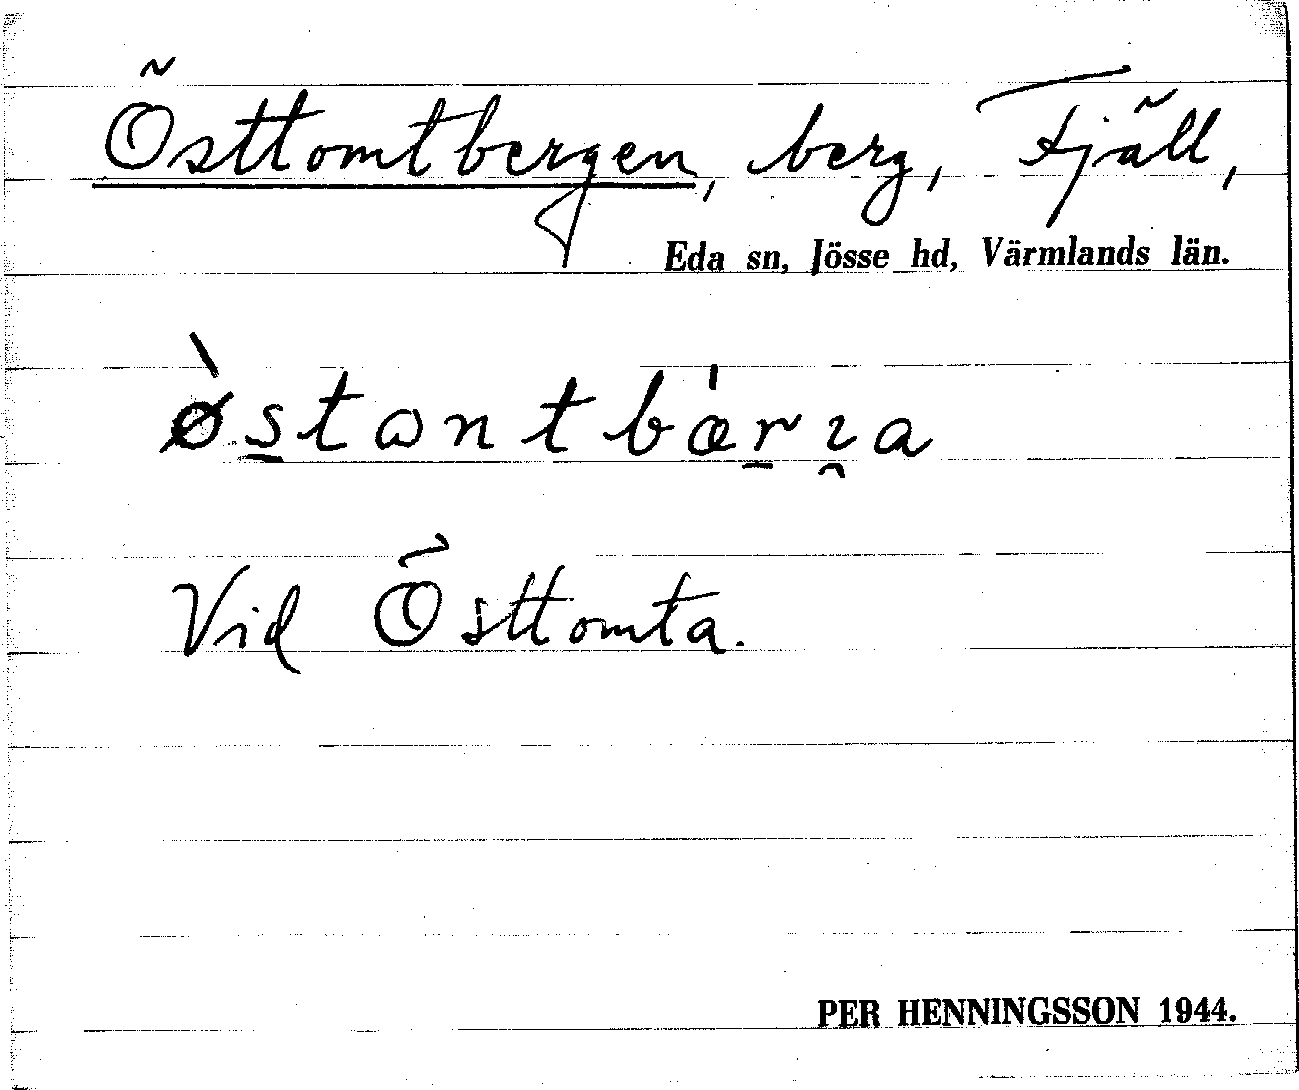 Östtomtbergen, berg, Fjäll,
Eda sn, Jösse hd, Värmlands län.
Vid Östtomta.
PER HENNINGSSON 1944.